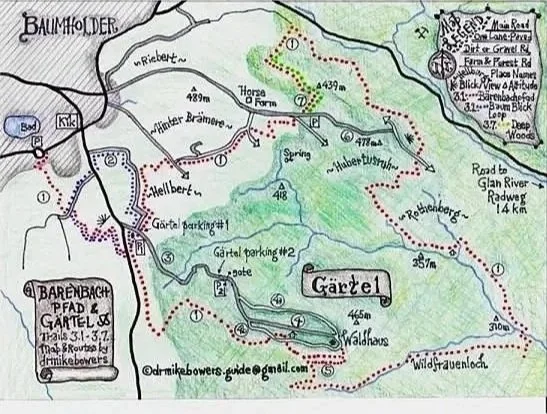 BAUMHOLDER
Map
LEGEND
Main Road
One Lane-Paved
Dirt or Gravel Rd
Farm & Forest Rd
Hellbert
Place Names
Blick/View
Altitude
3.1 Bärenbachpfad
3.2 Baum Blick
Loop
3.7 Deep
Woods
~Riebert~
1
489m
Horse
Farm
439m
7
Kik
Bad
P
~Hinter Brämere~
P
6
478m
2
1
Spring
~Hubertusruh~
~Hellbert~
418
Road to
Glan River
Radweg
14 km
1
~Rothenberg~
Gärtel parking #1
P
3
Gärtel parking #2
gate
P
357m
1
BÄRENBACH
PFAD &
GÄRTEL
Trails 3.1-3.7
Map & Routes by
drmikebowers
Gärtel
4
4
4
465m
Waldhaus
310m
1
5
Wildfrauenloch
©drmikebowers.guide@gmail.com